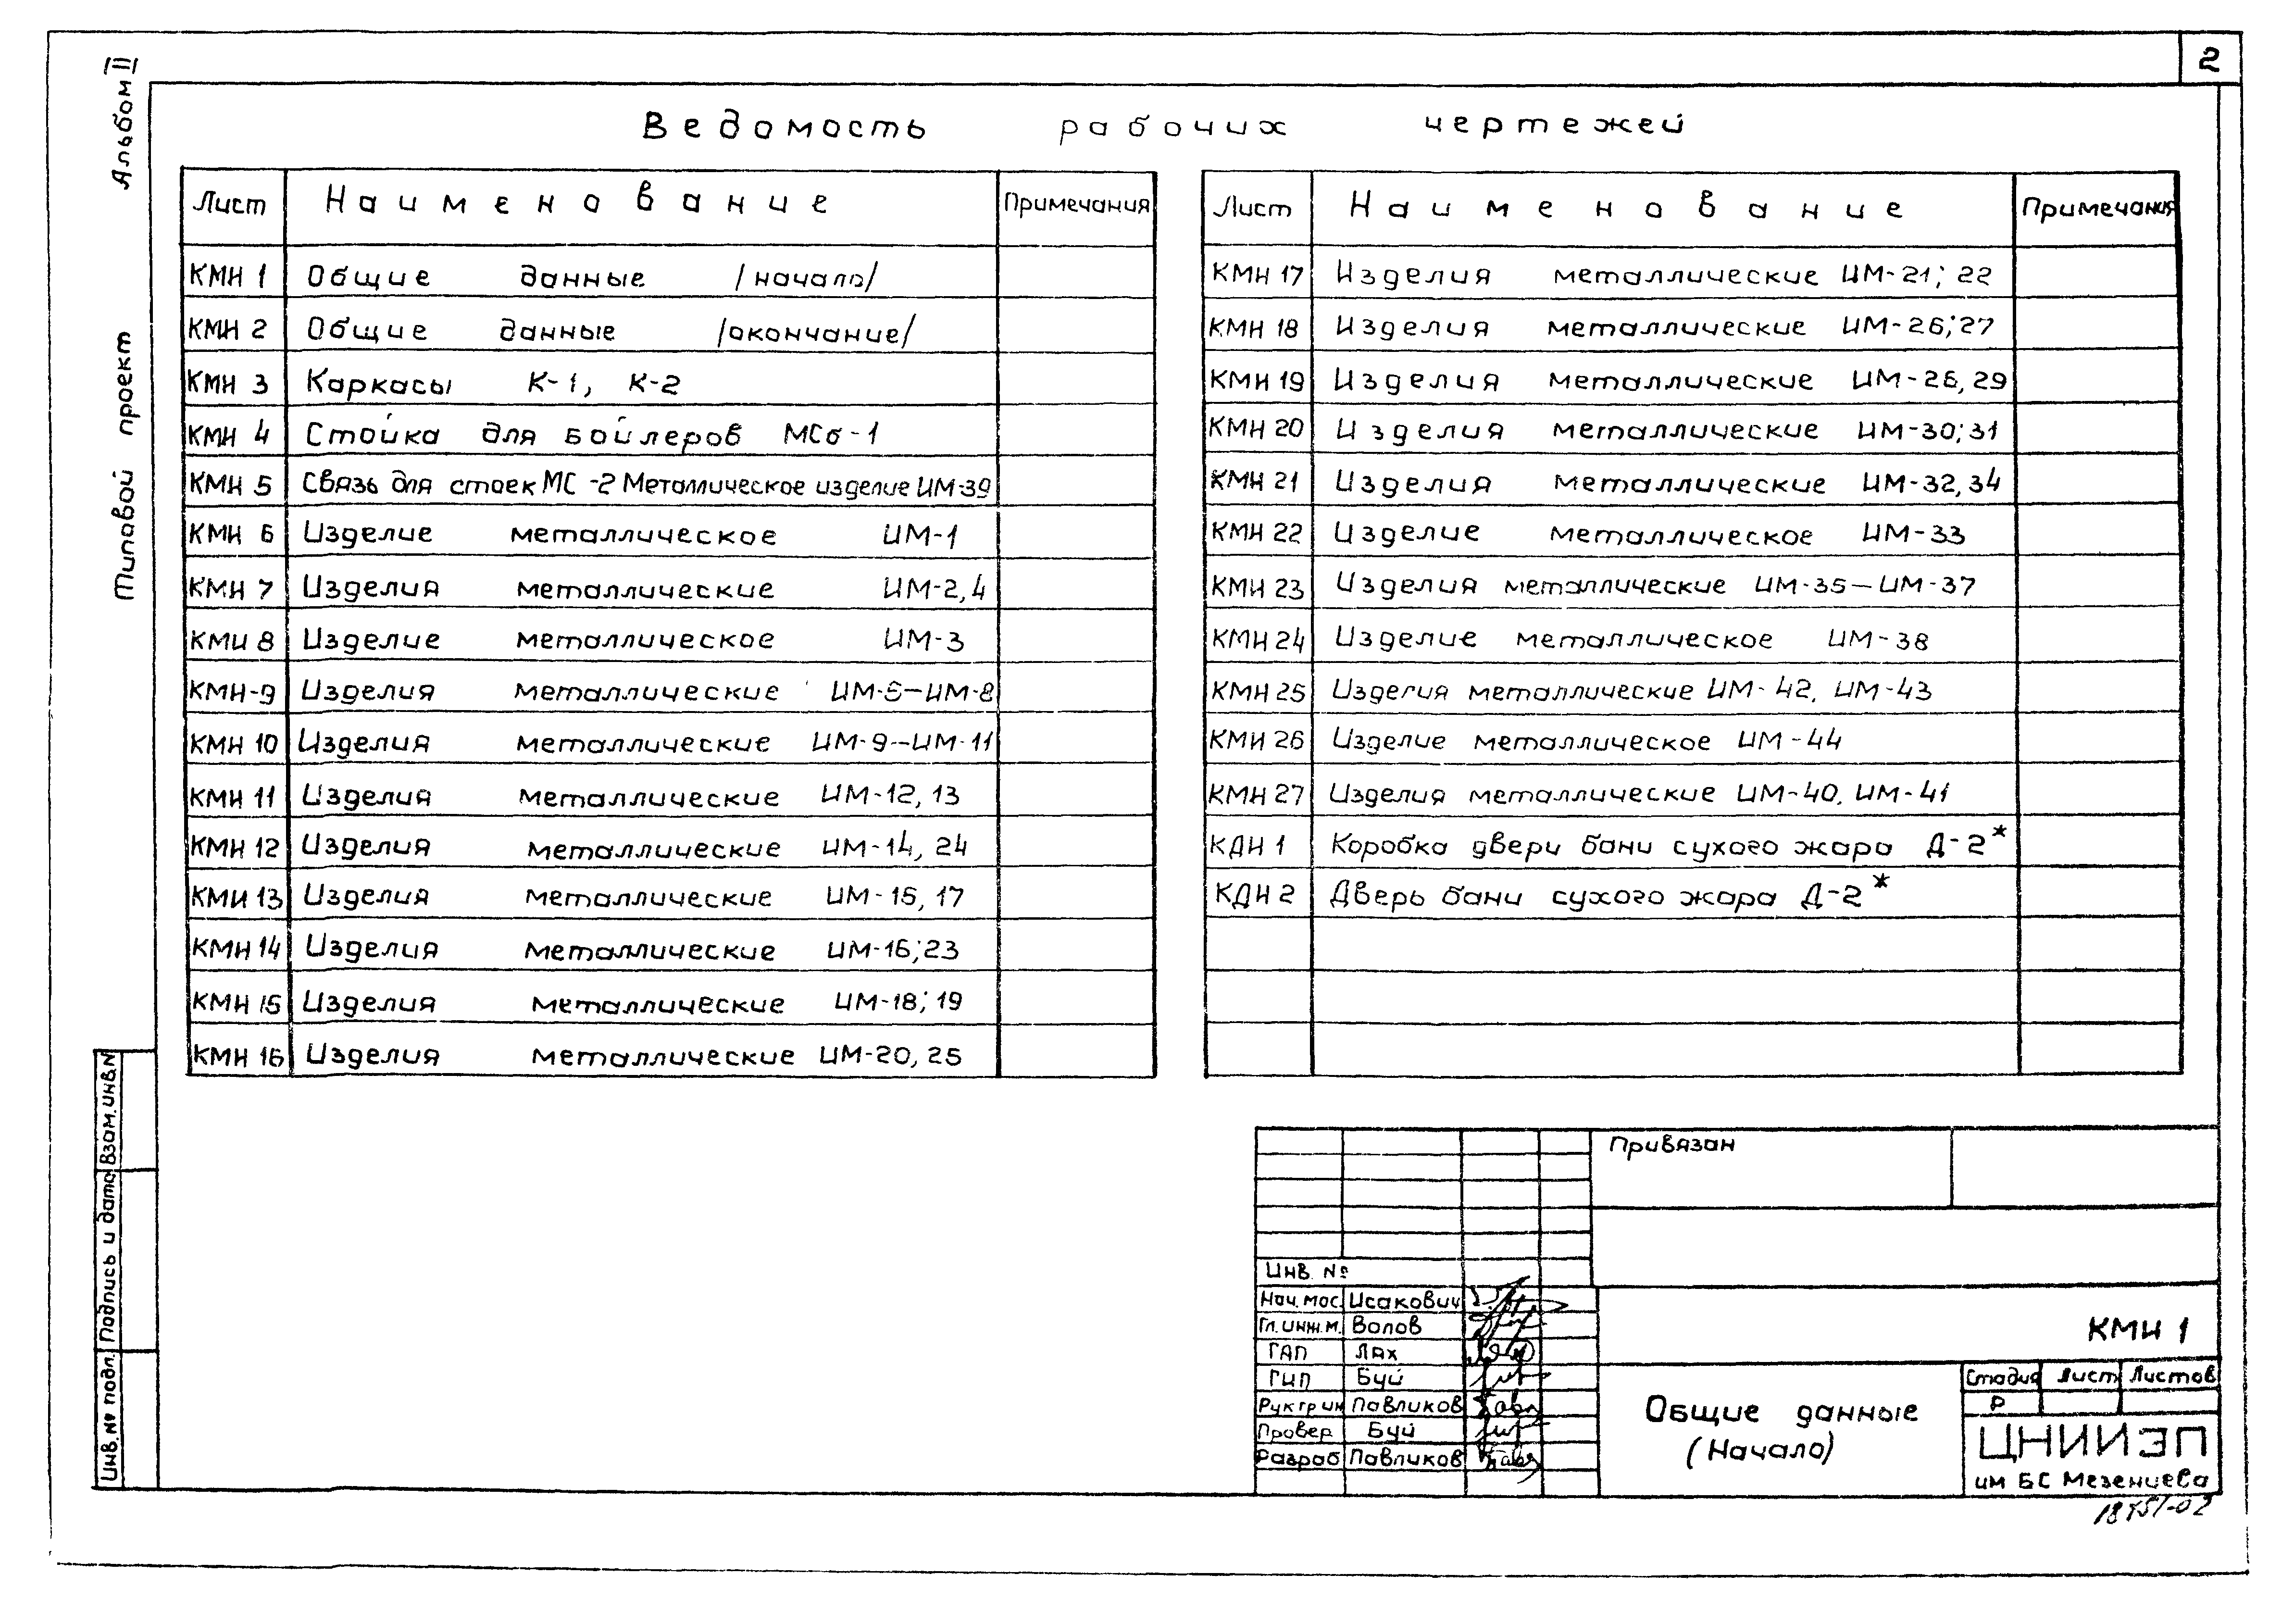 2
Альбом III
Типовой проект
Ведомость рабочих чертежей
Лист Наименование Примечания
КМН 1 Общие данные /начало/
КМН 2 Общие данные /окончание/
КМН 3 Каркасы К-1, К-2
КМН 4 Стойка для бойлеров МСб-1
КМН 5 Связь для стоек МС-2 Металлическое изделие ИМ-39
КМН 6 Изделие металлическое ИМ-1
КМН 7 Изделия металлические ИМ-2,4
КМН 8 Изделие металлическое ИМ-3
КМН-9 Изделия металлические ИМ-5-ИМ-8
КМН 10 Изделия металлические ИМ-9-ИМ-11
КМН 11 Изделия металлические ИМ-12, 13
КМН 12 Изделия металлические ИМ-14, 24
КМН 13 Изделия металлические ИМ-15, 17
КМН 14 Изделия металлические ИМ-16; 23
КМН 15 Изделия металлические ИМ-18; 19
КМН 16 Изделия металлические ИМ-20, 25
Лист Наименование Примечания
КМН 17 Изделия металлические ИМ-21; 22
КМН 18 Изделия металлические ИМ-26; 27
КМН 19 Изделия металлические ИМ-26, 29
КМН 20 Изделия металлические ИМ-30; 31
КМН 21 Изделия металлические ИМ-32, 34
КМН 22 Изделие металлическое ИМ-33
КМН 23 Изделия металлические ИМ-35-ИМ-37
КМН 24 Изделие металлическое ИМ-38
КМН 25 Изделия металлические ИМ-42, ИМ-43
КМН 26 Изделие металлическое ИМ-44
КМН 27 Изделия металлические ИМ-40, ИМ-41
КДН 1 Коробка двери бани сухого жара Д-2*
КДН 2 Дверь бани сухого жара Д-2*
Взам. инв.N
Подпись и дата
Инв. № подл.
Привязан
Инв. №
Нач. мас. Исакович
Гл. инж. м. Волов
ГАП Лях
ГИП Буй
Рук гр ин Павликов
Провер Буй
Разраб Павликов
КМН 1
Общие данные
(Начало)
Стадия Лист Листов
Р
ЦНИИЭП
им БС Мезенцева
18451-02